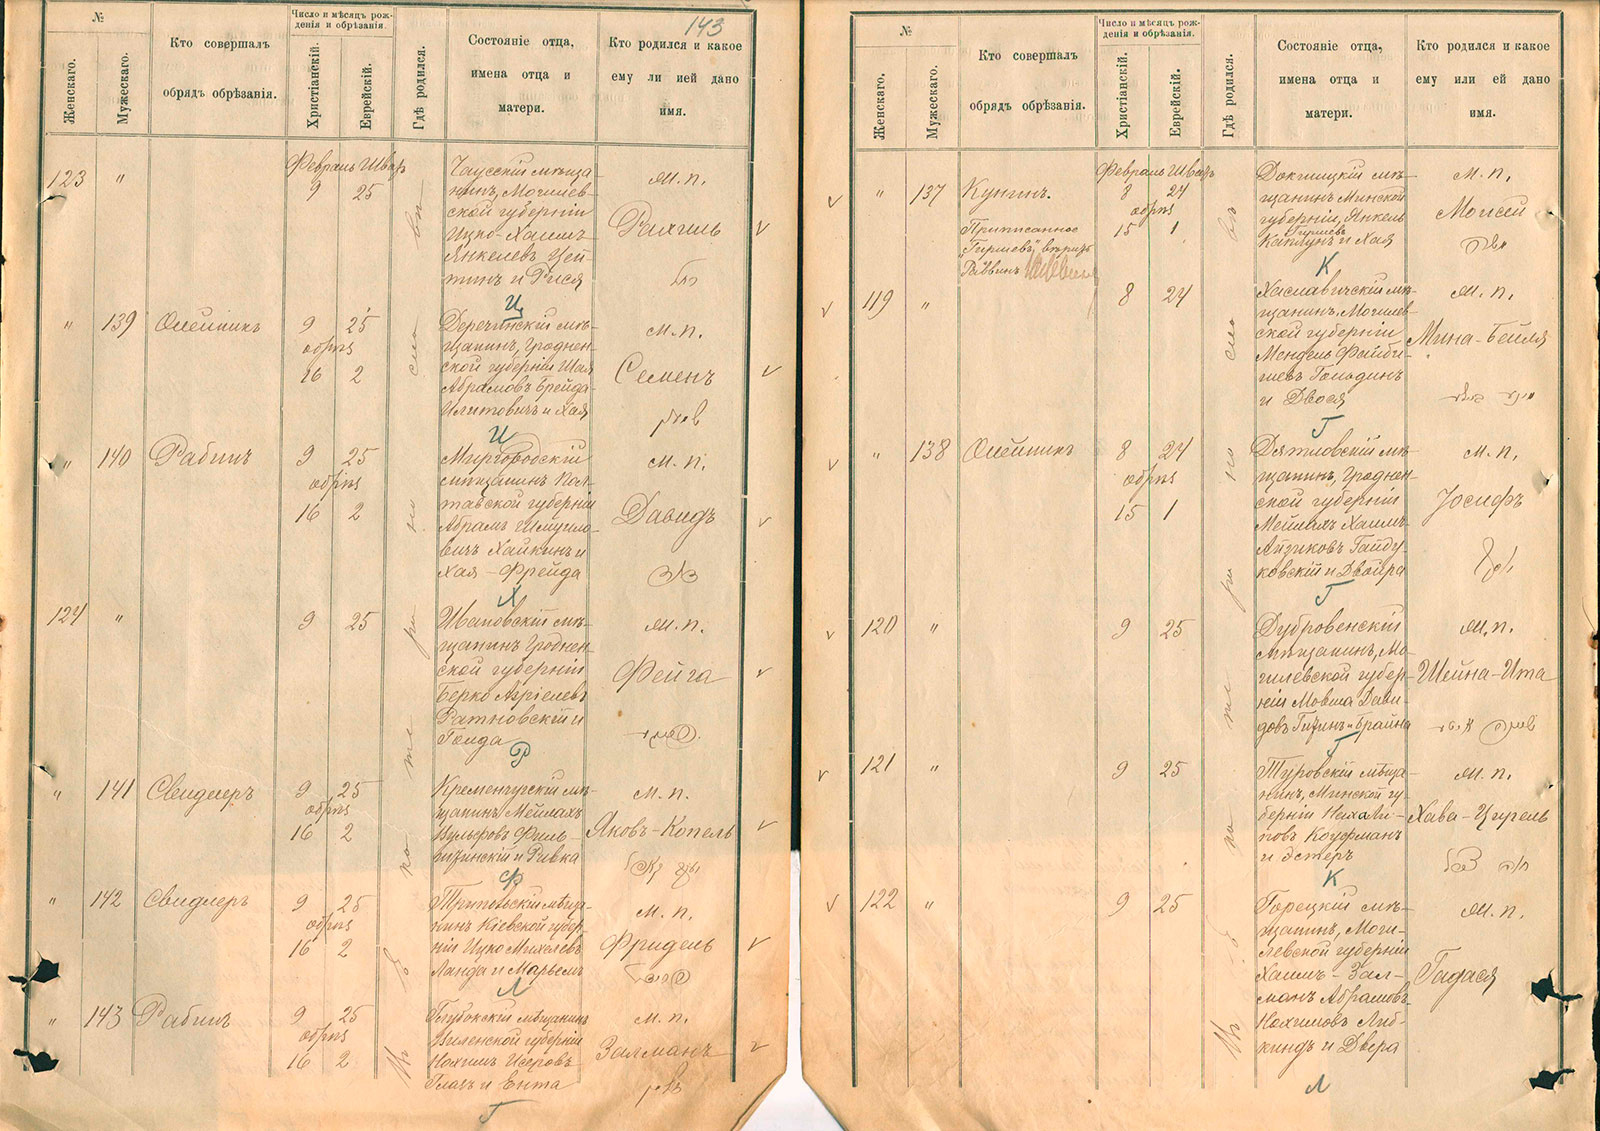 143
№
Женскаго.
Мужескаго.
Кто совершалъ
обрядъ обрѣзанія.
Число и мѣсяцъ рож-
денія и обрѣзанія.
Христіанскій.
Еврейскій.
Гдѣ родился.
Состояніе отца,
имена отца и
матери.
Кто родился и какое
ему ли ией дано
имя.
123 "
Февраль Шватъ
9 25
Чаусскій мѣща-
нинъ, Могилев-
ской губерніи
Ицко-Хаимъ
Янкелевъ Цей-
тинъ и Рися
м. п.
Рахиль
רחל
Ц
" 139 Олейникъ
9 25
обрѣз
16 2
Деречинскій мѣ-
щанинъ, Гроднен-
ской губерніи Шая
Абрамовъ Брейда-
и Хая
м. п.
Семенъ
И
" 140 Рабинъ
9 25
обрѣз
16 2
Миргородскій
мѣщанинъ Пол-
тавской губерніи
Абрамъ Шмуило-
вичъ Хайкинъ и
Хая-Фрейда
м. п.
Давидъ
דוד
Х
124 "
9 25
мѣ-
щанинъ Гроднен-
ской губерніи
Берко Азріелевъ
Ратновскій и
Голда
м. п.
Фейга
פייגע
Р
" 141 Свидлеръ
9 25
обрѣз
16 2
Кременчугскій мѣ-
щанинъ Мейлахъ
Вульфовъ Филь-
и Ривка
м. п.
Яковъ-Копель
יעקב קאפל
Ф
" 142 Свидлеръ
9 25
обрѣз
16 2
Трипольскій мѣща-
нинъ Кіевской губер-
ніи Ицко Михелевъ
Ланда и Марьемъ
м. п.
Фридель
Л
" 143 Рабинъ
9 25
обрѣз
16 2
Глубокскій мѣщанинъ
Виленской губерніи
Нохимъ Исеровъ
Глазъ и Ента
м. п.
Залманъ
Г
№
Женскаго.
Мужескаго.
Кто совершалъ
обрядъ обрѣзанія.
Число и мѣсяцъ рож-
денія и обрѣзанія.
Христіанскій.
Еврейскій.
Гдѣ родился.
Состояніе отца,
имена отца и
матери.
Кто родился и какое
ему или ей дано
имя.
" 137 Кунинъ.
Приписанное
"Гиршевъ" вѣрно
Раввинъ
Февраль Шватъ
8 24
обрѣз
15 1
Докшицкій мѣ-
щанинъ Минской
губерніи, Янкель
Гиршевъ
Каплунъ и Хая
м. п.
Моисей
משה
К
119 "
8 24
Хаславичскій мѣ-
щанинъ, Могилев-
ской губерніи
Мендель Файби-
шевъ Гольдинъ
и Двося
м. п.
Мина-Бейля
מינה ביילע
Г
" 138 Олейникъ
8 24
обрѣз
15 1
Дятловскій мѣ-
щанинъ, Гроднен-
ской губерніи
Мейлахъ Хаимъ-
Айзиковъ Гайду-
ковскій и Двойра
м. п.
Іосифъ
יוסף
Г
120 "
9 25
Дубровенскій
мѣщанинъ, Мо-
гилевской губер-
ніи Мовша Дави-
довъ и Брайна
м. п.
Шейна-Ита
שיינה איטע
Г
121 "
9 25
Туровскій мѣща-
нинъ, Минской гу-
берніи
Кауфманъ
и Эстеръ
м. п.
Хава-Цирель
חוה צירל
К
122 "
9 25
Горецкій мѣ-
щанинъ, Моги-
левской губерніи
Хаимъ-Зал-
манъ Абрамовъ-
Нохимовъ Либ-
киндъ и Двера
м. п.
Гадася
Л